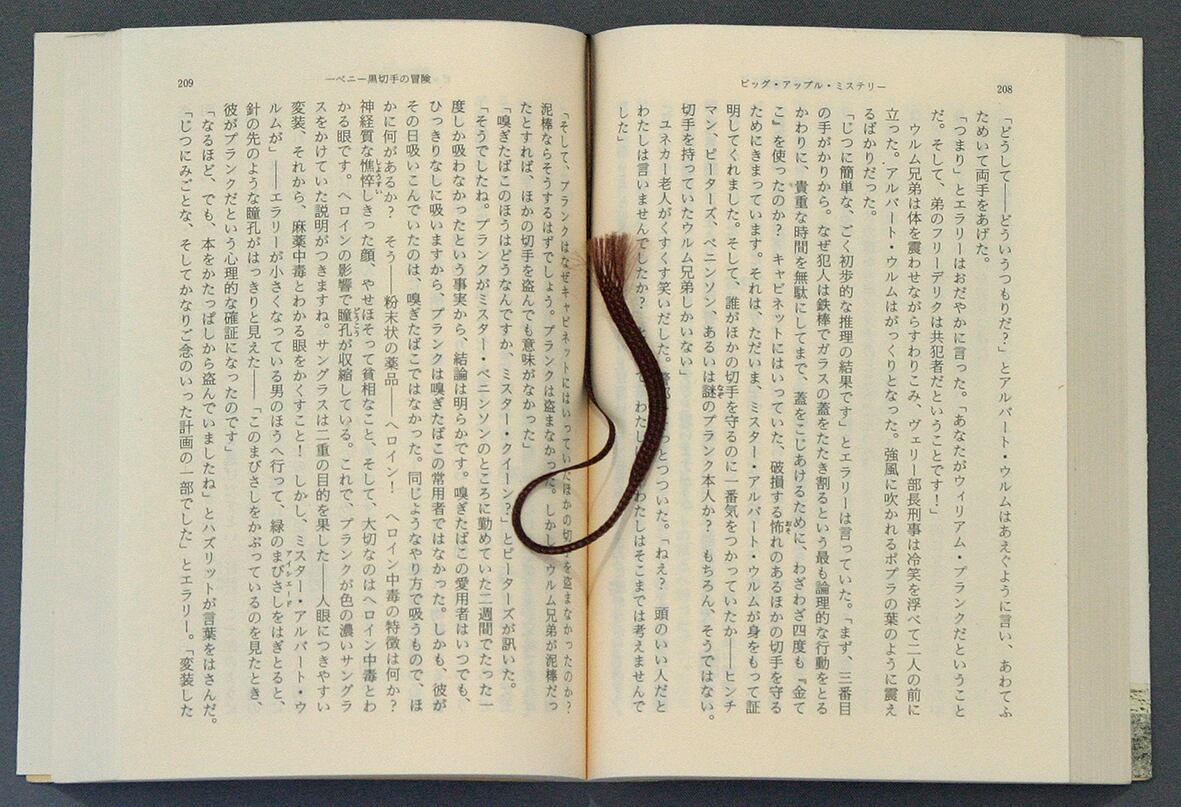 208
ビッグ・アップル・ミステリー
「どうして――どういうつもりだ？」とアルバート・ウルムはあえぐように言い、あわてふ
ためいて両手をあげた。
「つまり」とエラリーはおだやかに言った。「あなたがウィリアム・プランクだということ
だ。そして、弟のフリーデリクは共犯者だということです！」
ウルム兄弟は体を震わせながらすわりこみ、ヴェリー部長刑事は冷笑を浮べて二人の前に
立った。アルバート・ウルムはがっくりとなった。強風に吹かれるポプラの葉のように震え
るばかりだった。
「じつに簡単な、ごく初歩的な推理の結果です」とエラリーは言っていた。「まず、三番目
の手がかりから。なぜ犯人は鉄棒でガラスの蓋をたたき割るという最も論理的な行動をとる
かわりに、貴重な時間を無駄にしてまで、蓋をこじあけるために、わざわざ四度も『金て
こ』を使ったのか？　キャビネットにはいっていた、破損する怖れのあるほかの切手を守る
ためにきまっています。それは、ただいま、ミスター・アルバート・ウルムが身をもって証
明してくれました。そして、誰がほかの切手を守るのに一番気をつかっていたか――ヒンチ
マン、ピーターズ、ベニンソン、あるいは謎のプランク本人か？　もちろん、そうではない。
切手を持っていたウルム兄弟しかいない」
ユネカー老人がくすくす笑いだした。とつついた。「ねえ？　頭のいい人だと
わたしは言いませんでしたか？　わたし わたしはそこまでは考えませんで
した」
一ペニー黒切手の冒険
209
「そして、プランクはなぜキャビネットにはいっていたほかの切 を盗まなかったのか？
泥棒ならそうするはずでしょう。プランクは盗まなかった。しかし ウルム兄弟が泥棒だっ
たとすれば、ほかの切手を盗んでも意味がなかった」
「嗅ぎたばこのほうはどうなんですか、ミスター・クイーン？」とピーターズが訊いた。
「そうでしたね。プランクがミスター・ベニンソンのところに勤めていた二週間でたった一
度しか吸わなかったという事実から、結論は明らかです。嗅ぎたばこの愛用者はいつでも、
ひっきりなしに吸いますから、プランクは嗅ぎたばこの常用者ではなかった。しかも、彼が
その日吸いこんでいたのは、嗅ぎたばこではなかった。同じようなやり方で吸うもので、ほ
かに何があるか？　そう――粉末状の薬品――ヘロイン！　ヘロイン中毒の特徴は何か？
神経質な憔悴しきった顔、やせほそって貧相なこと、そして、大切なのはヘロイン中毒とわ
かる眼です。ヘロインの影響で瞳孔が収縮している。これで、プランクが色の濃いサングラ
スをかけていた説明がつきますね。サングラスは二重の目的を果した――人眼につきやすい
変装、それから、麻薬中毒とわかる眼をかくすこと！　しかし、ミスター・アルバート・ウ
ルムが」――エラリーが小さくなっている男のほうへ行って、緑のまびさしをはぎとると、
針の先のような瞳孔がはっきりと見えた――「このまびさしをかぶっているのを見たとき、
彼がプランクだという心理的な確証になったのです」
「なるほど、でも、本をかたっぱしから盗んでいましたね」とハズリットが言葉をはさんだ。
「じつにみごとな、そしてかなりご念のいった計画の一部でした」とエラリー。「変装した